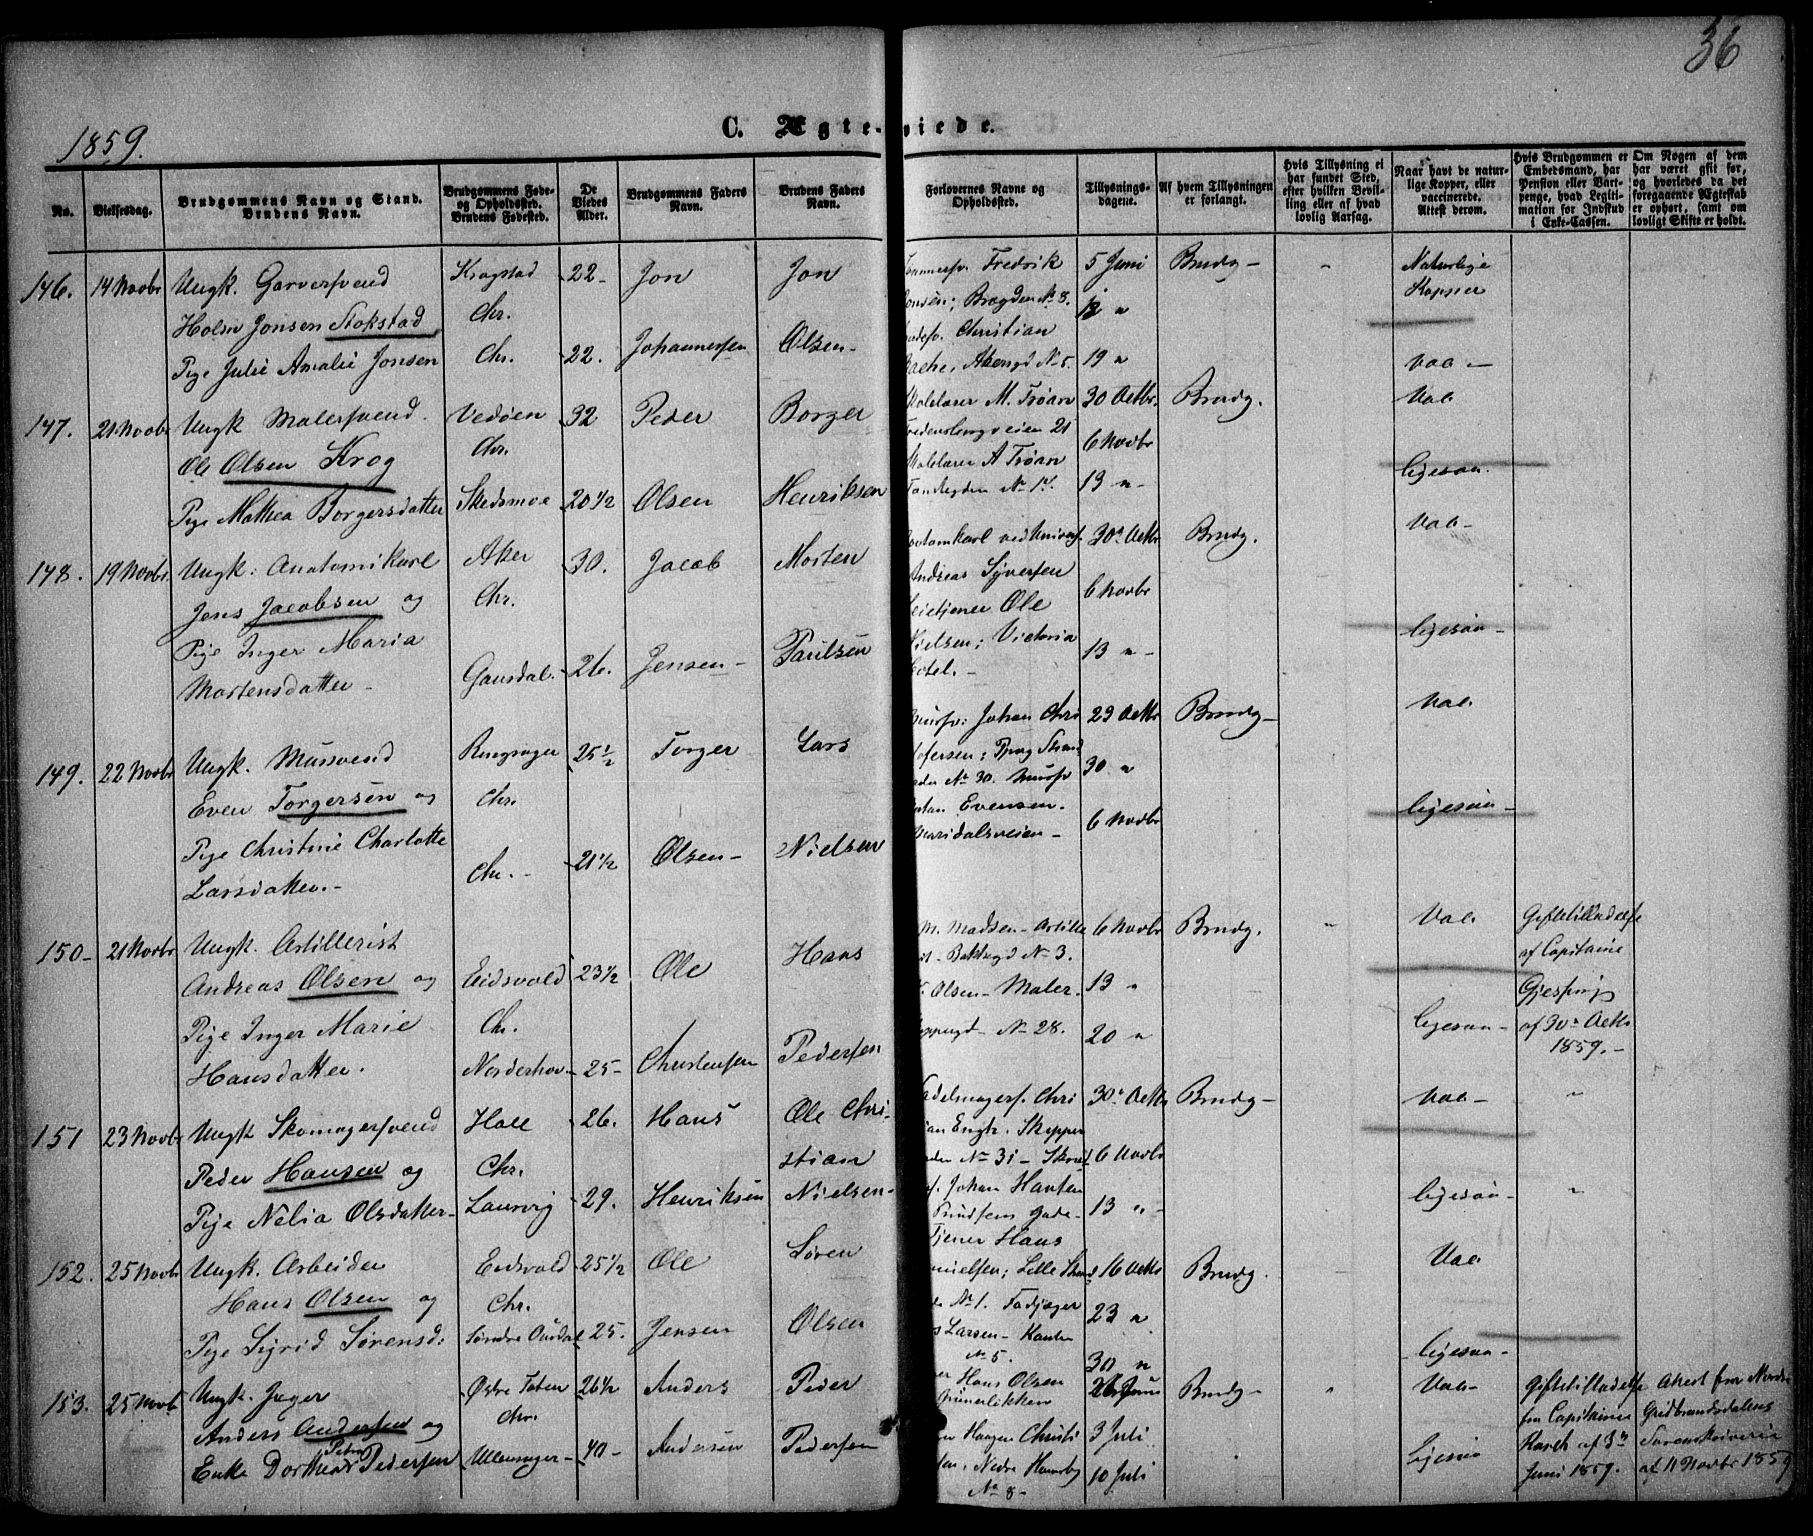 36
1859.
C. Ægte-viede.
No.
Vielsesdag.
Brudgommens Navn og Stand.
Brudens Navn.
Brudgommens Føde-
og Opholdssted.
Brudens Fødested.
De
Viedes
Alder.
Brudgommens Faders
Navn.
Brudens Faders
Navn.
Forlovernes Navne og
Opholdssted.
Tillysnings-
dagene.
Af hvem Tillysningen
er forlangt.
Hvis Tillysning ei
har fundet Sted,
efter hvilken Bevil-
ling eller af hvad
lovlig Aarsag.
Naar havt de natur-
lige Kopper, eller
vaccinerede.
Attest derom.
Hvis Brudgommen er
Embedsmand, har
Pension eller Vart-
penge, hvad Legiti-
mation for Indskud
i Enke-Cassen.
Om Nogen af dem
har været gift før,
og hvorledes da det
foregaaende Ægteskab
er ophørt, samt om
lovligt Skifte er holdt.
146. 14 Novbr Ungk. Garversvend Krogstad 22- Jon Jon Fredrik 5 Juni Brudg- " Naturlige
Holm Jonsen Stokstad Chr. Bragden No 8. 12 " Kopper
Christian
Pige Julie Amalie Jonsen Chr. 22. Johannessen Olsen- Akersgd No 5. 19 " Vac-
147. 21 Novbr Ungk Malersvend Vedøen 32 Peder Borger M. Trøan 30 Octbr. Brudg. Vac
Ole Olsen Krog Chr. Fredensborgveien 21 6 Novbr
A Trøan ligesaa.
Pige Mathea Borgersdatter Skedsmoe 20 1/2 Olsen Henriksen No 17. 13 "-
148. 19 Novbr. Ungk: Anatomikarl Aker 30. Jacob Morten ved Univers. 30 Octbr Brudg. Vac-
Jens Jacobsen og Chr. Andreas Syversen 6 Novbr
Ole
Pige Inger Maria Gausdal. 26. Jensen- Paulsen Nielsen; Victoria 13 "- ligesaa-
Mortensdatter- Hotel.-
149. 22 Novbr Ungk. Mursvend Ringsager 25 1/2 Torger Lars Johan Chri 23 Octbr Brudg- Vac.
No 30. 30 "
Even Torgersen og Chr. Evensen. ligesaa-
Pige Christine Charlotte Chr.- 21 1/2 Olsen- Nielsen Maridalsveien- 6 Novbr
Larsdatter.-
150- 21 Novbr Ungk. Artillerist Eidsvold 23 1/2 Ole Hans M. Madsen- Artille 6 Novbr Brudg. " Vac. Giftetilladelse
Andreas Olsen og Chr. No 3. af Capitaine
Olsen- Maler. 13 " Gjessing
Pige Inger Marie Norderhov- 25- Christensen Pedersen No 28. 20 " ligesaa- af 30 Octbr
Hansdatter. 1859.-
151 23 Novbr Ungk Skomagersvend Hole 26. Hans Ole Chri- Chri 30 Octbr Brudg- Vac- "
stian Engh. Skipper
Peder Hansen og Chr. No 31- 6 Novbr
Pige Nelia Olsdatter- Laurvig 29. Henriksen Nielsen- Johan 13 "- ligesaa- "
152. 25 Novbr Ungk. Arbeider Eidsvold 25 1/2 Ole Søren Tjener Hans 16 Octbr Brudg. Vac.
Hans Olsen og Chr. No 1. 23 "
Pige Sigrid Sørensd: Søndre Aurdal 25. Jensen Olsen Larsen- No 5. 30 " ligesaa-
153. 25 Novb Ungk. Jæger Østre Toten 26 1/2 Anders Peder Hans Olsen 26 Juni Brudg- " Vac- Giftetilladelse Attest fra Nordre
Anders Andersen og Chr. Grünerløkken 3 Juli fra Capitaine Gudbrandsdalens
Enke Dorthea Petra Pedersen Ullensager- 40- Andersen Pedersen Haagen Christi 10 Juli " Ligesaa af 3 Sorenskriverie
No 8- Juni 1859. af 11 Novbr 1859